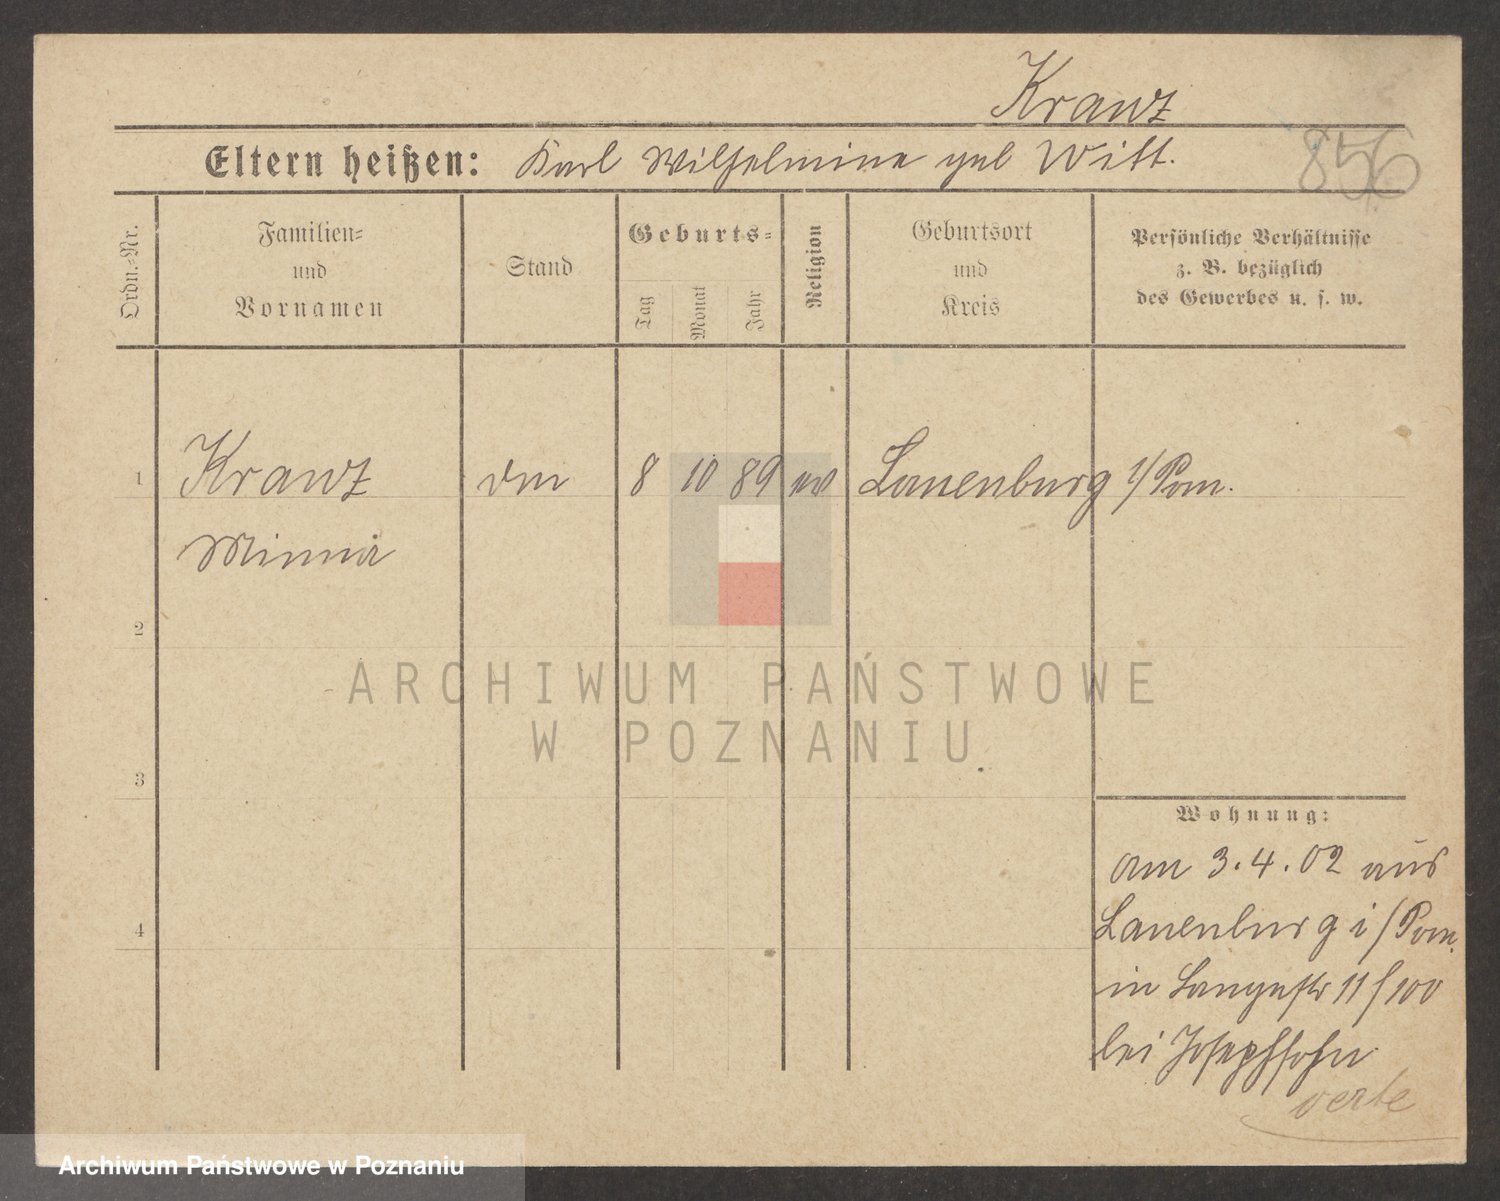 Kranz
Eltern heißen: Karl Wilhelmine geb Witt.
856
Ordn.-Nr.
Familien-
und
Vornamen
Stand
Geburts-
Tag
Monat
Jahr
Religion
Geburtsort
und
Kreis
Persönliche Verhältnisse
z. B. bezüglich
des Gewerbes u. s. w.
1
Kranz 8 10 89 ev Lauenburg i/Pom.
Minna
2
ARCHIWUM PAŃSTWOWE
W POZNANIU
3
Wohnung:
am 3.4.02 aus
4
Lauenburg i/Pom.
in Langestr 11 / 100
bei Josephsohn
verte
Archiwum Państwowe w Poznaniu